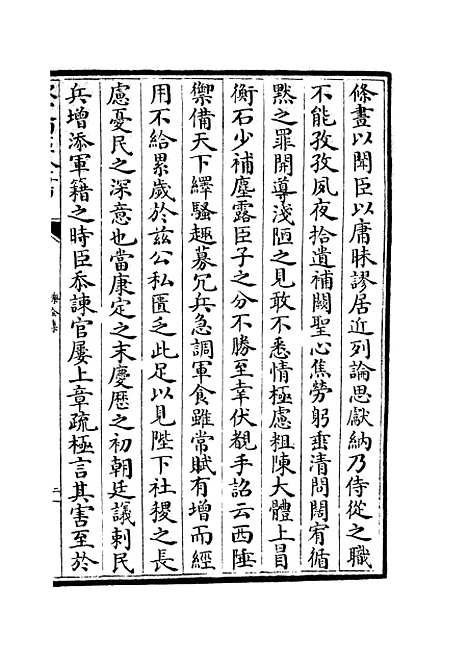 條畫以聞臣以庸昧謬居近列論思獻納乃侍從之職
不能孜孜夙夜拾遺補闕聖心焦勞躬垂清問闊宥循
黙之罪開導淺陋之見敢不悉情極慮粗陳大體上冒
衡石少補塵露臣子之分不勝至幸伏覩手詔云西陲
禦備天下繹騷趣募冗兵急調軍食雖常賦有增而經
用不給累歲於兹公私匱乏此足以見陛下社稷之長
慮憂民之深意也當康定之末慶歷之初朝廷議刺民
兵增添軍籍之時臣忝諫官屢上章疏極言其害至於
樂全集